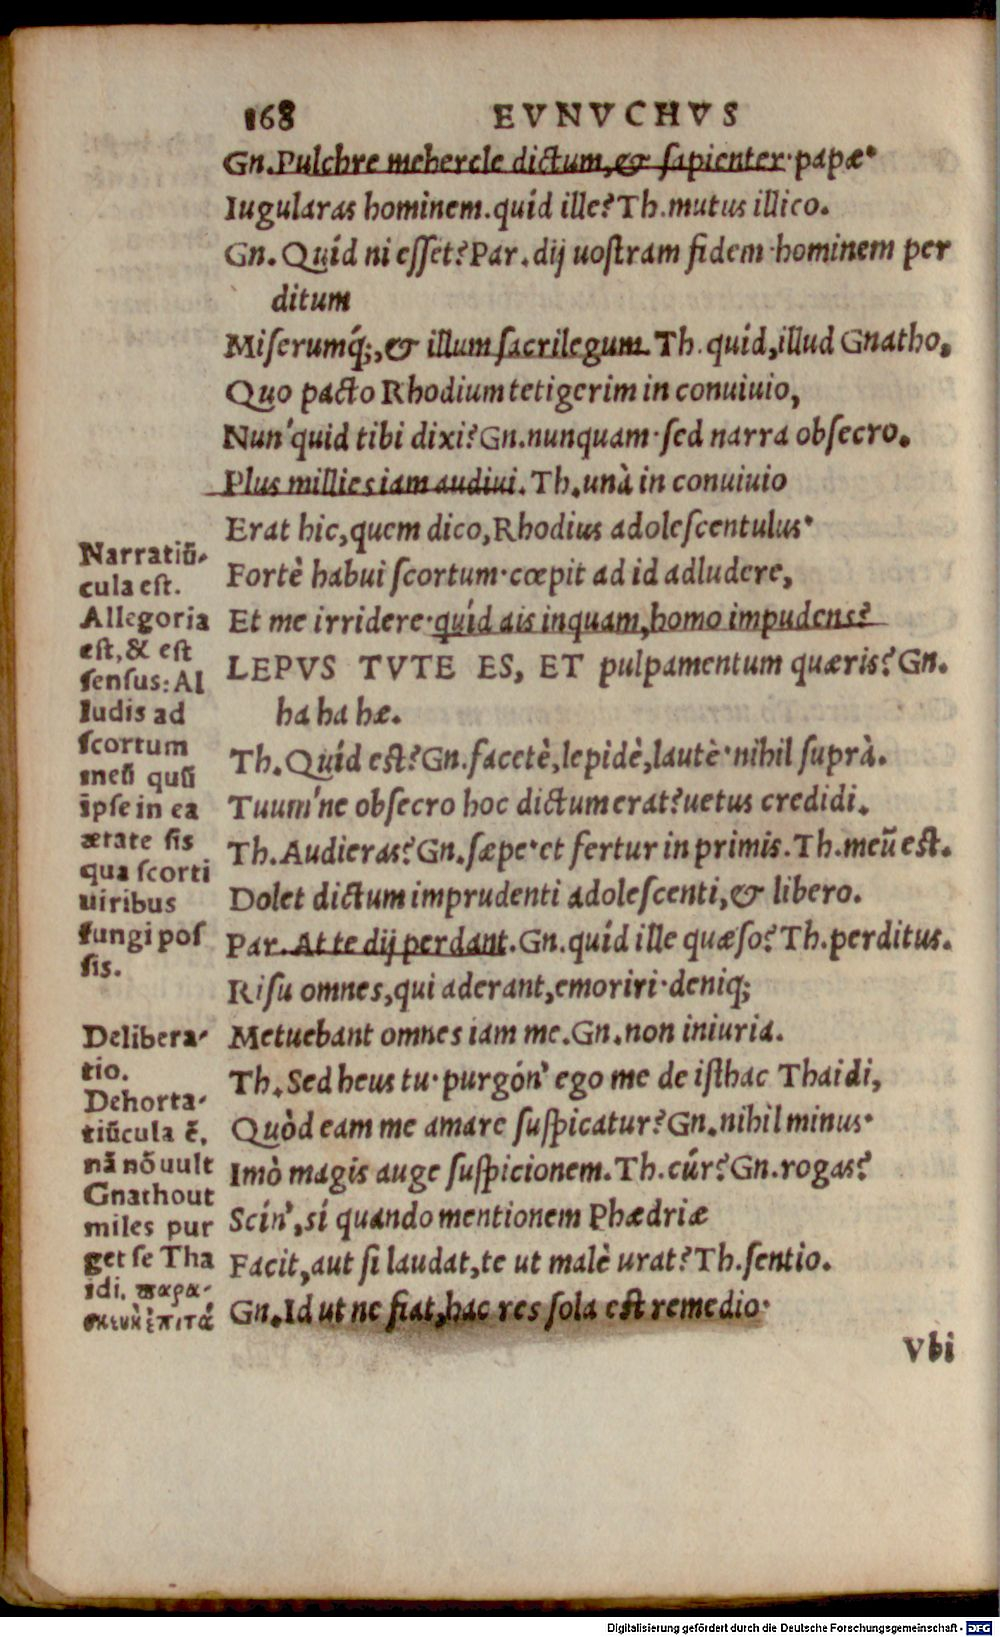 168 EVNVCHVS
Gn. Pulchre mehercle dictum, & sapienter· papæ·
Iugularas hominem. quíd ille? Th. mutus illico.
Gn. Quíd ni esset? Par. dij uostram fidem· hominem per
ditum
Miserumq́;, & illum sacrilegum. Th. quíd, illud Gnatho,
Quo pacto Rhodium tetigerim in conuiuio,
Nun'quid tibi dixi? Gn. nunquam· sed narra obsecro.
Plus millies iam audiui. Th. unà in conuiuio
Erat hic, quem dico, Rhodius adolescentulus·
Fortè habui scortum· cœpit ad id adludere,
Et me irridere· quíd ais inquam, homo impudens?
LEPVS TVTE ES, ET pulpamentum quæris? Gn.
ha ha hæ.
Th. Quíd est? Gn. facetè, lepidè, lautè· nihil suprà.
Tuum'ne obsecro hoc dictum erat? uetus credidi.
Th. Audieras? Gn. sæpe· et fertur in primis. Th. meũ est.
Dolet dictum imprudenti adolescenti, & libero.
Par. At te dij perdant. Gn. quíd ille quæso? Th. perditus.
Risu omnes, qui aderant, emoriri· deniq;
Metuebant omnes iam me. Gn. non iniuria.
Th. Sed heus tu· purgón' ego me de isthac Thaidi,
Quòd eam me amare suspicatur? Gn. nihil minus·
Imò magis auge suspicionem. Th. cúr? Gn. rogas?
Scín', sí quando mentionem Phædriæ
Facit, aut si laudat, te ut malè urat? Th. sentio.
Gn. Id ut ne fiat, hac res sola est remedio·
Vbi
Narratiũ-
cula est.
Allegoria
est, & est
sensus: Al
ludis ad
scortum
meũ qusi
ipse in ea
ætate sis
qua scorti
uiribus
fungi pos
sis.
Delibera-
tio.
Dehorta-
tiũcula ẽ,
nã nõ uult
Gnatho ut
miles pur
get se Tha
idi. παρα-
Digitalisierung gefördert durch die Deutsche Forschungsgemeinschaft - DFG